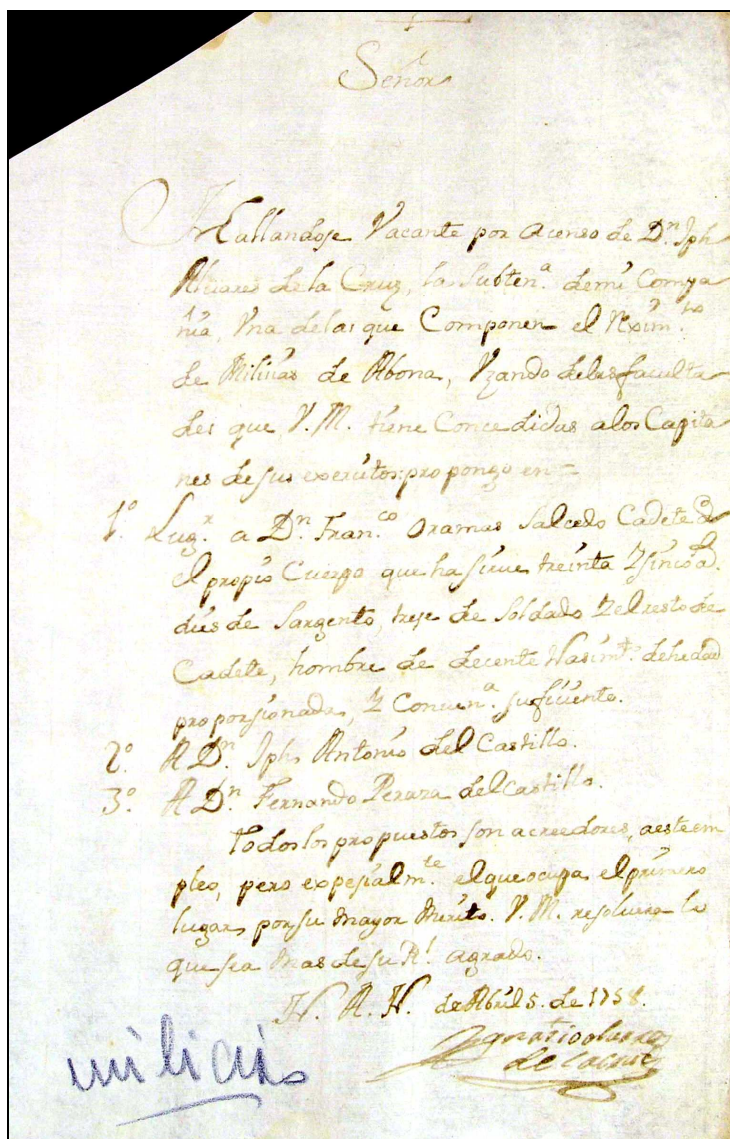 Señor
Hallandose Vacante por acenso de Dn. Jph
Alvares de la Cruz, la Subtena. de mi Compa
ñia, Vna delas que Componen el Reximto.
de Milicias de Abona, Vzando delas faculta
des que V.M. tiene Concedidas alos Capita
nes de sus exercitos: propongo en =
1º Lugr. a Dn. Franco. Oramas Salcedo Cadete de
el propio Cuerpo que ha sirue treinta y sinco ad.
dies de Sargento, trese de Soldado y el resto de
Cadete, hombre de decente Nasimto. de hedad
proporsionada, y Conuena. sufiuente.
2º A Dn. Jph Antonio del Castillo.
3º A Dn. Fernando Peraza del Castillo.
todos los propuestos son acreedores, a este em
pleo, pero expesialmte. el que ocupa el primero
lugar, por su mayor merito. V.M. resoluera lo
que sea mas de su Rl. agrado.
de Abril 5. de 1758.
Ignatio
de la Cruz
milicias